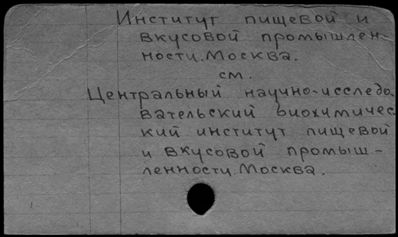 Институт пищевой и
вкусовой промышлен-
ности. Москва.
см.
Центральный научно-исследо
вательский биохимичес
кий институт пищевой
и вкусовой промыш-
ленности. Москва.